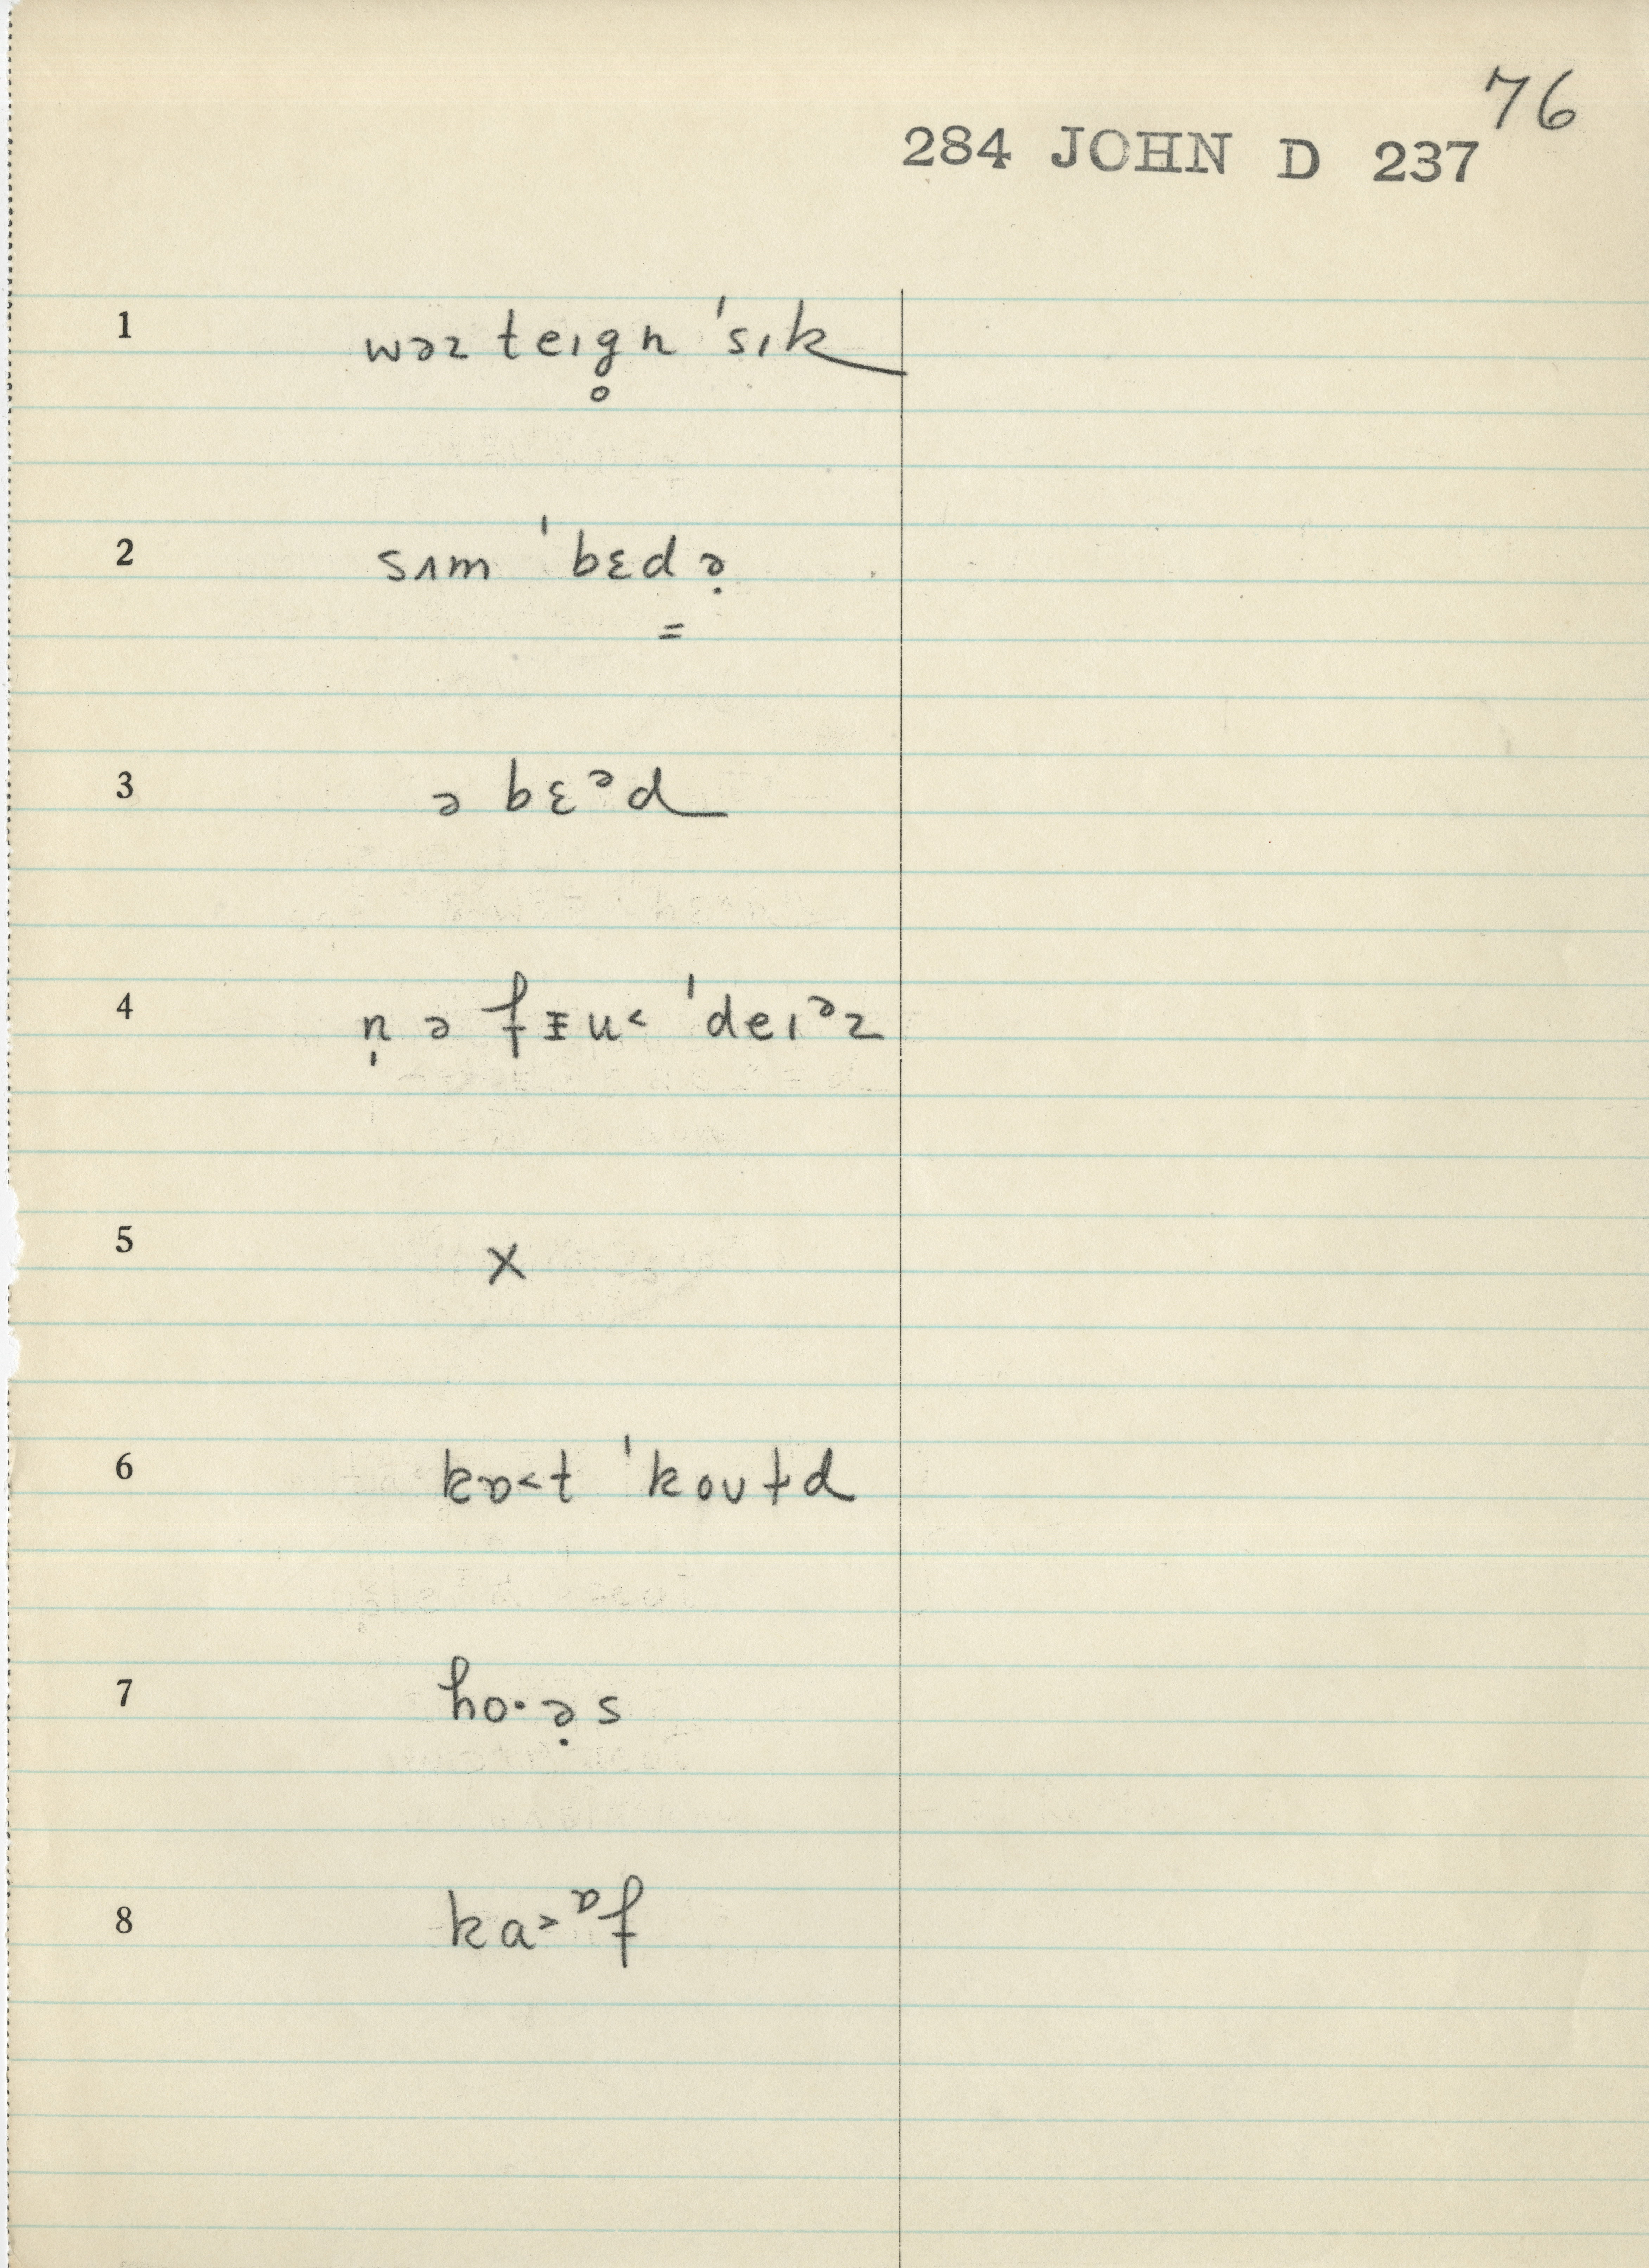 76
284 JOHN D 237
1 wəz teɪg̥n ˈsɪk
2 sʌm ˈbɛdə̣
=
3 ə bɛᵊd
4 n̩ ə fᵻu˂ ˈdeɪᵊz
5 x
6 kɒ˂t ˈkoʊɫd
7 ho·ə̣s
8 ka˃ᶛf